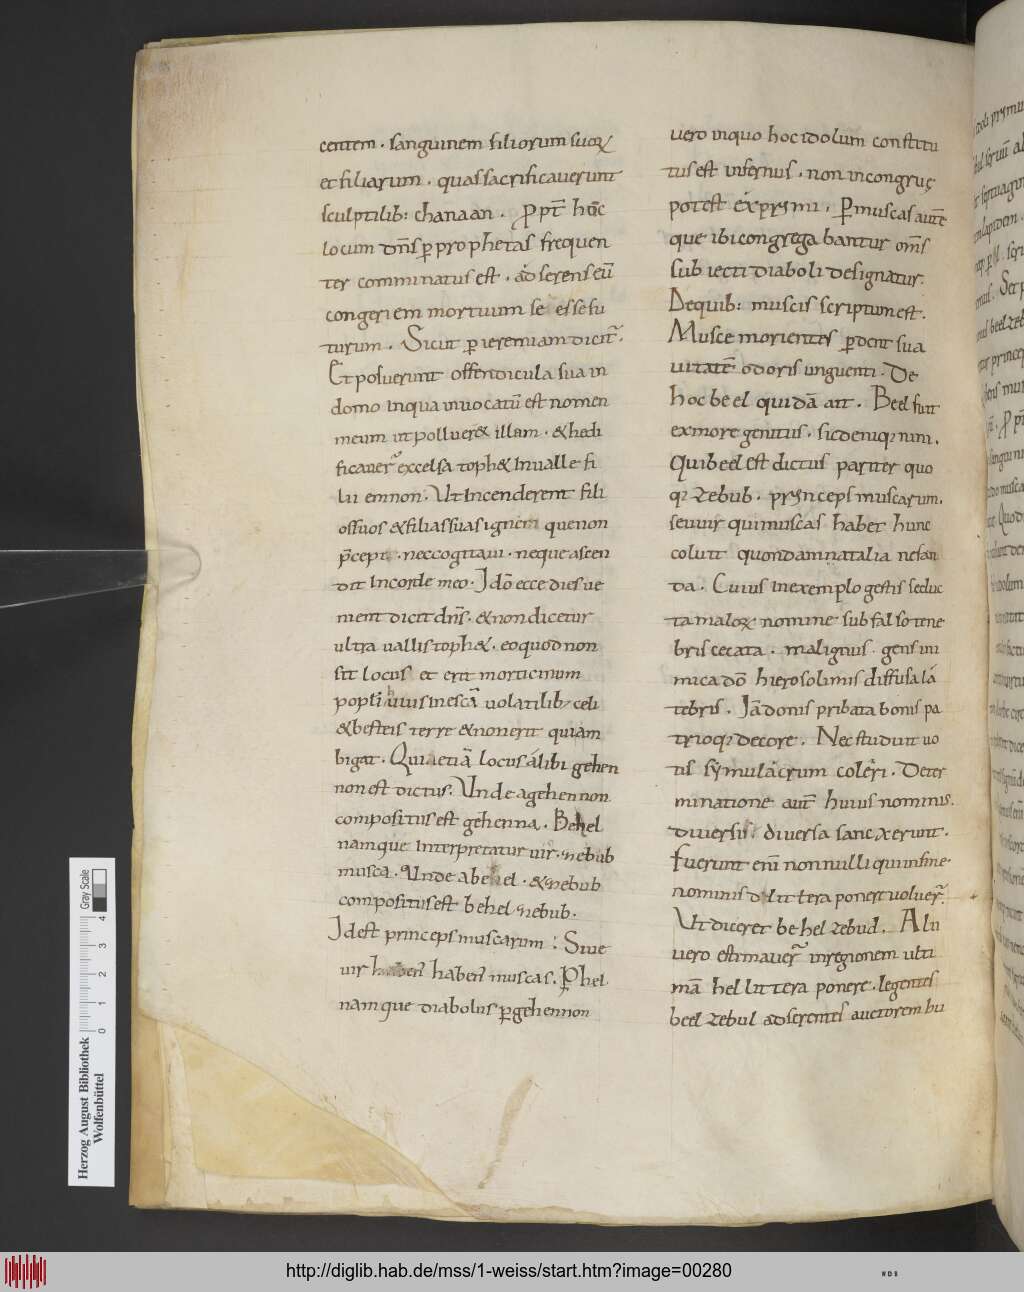 centem . sanguinem filiorum suoꝝ
et filiarum . quas sacrificauerunt
sculptilib: chanaan . Ꝓpt̄ hūc
locum dn̄s ꝑ prophetas frequen
ter comminatus est . adserens eū
congeriem mortuum se esse fu
turum . Sicut ꝑ ieremiam dicit̃ .
Et posuerunt offendicula sua in
domo inqua inuocatū est nomen
meum ut polluer& illam . &hedi
ficauer̃ excelsa toph& inualle fi
lii ennon . Ut incenderent fili
os suos &filias suas ignem quenon
p̄cepi . neccogitaui . neque ascen
dit incorde meo . Idō ecce dies ue
nient dicit dn̄s . &non dicetur
ultra uallis toph& . eoquodnon
sit locus et erit morticinum
popłi huius inescā uolatilib; celi
&besteis terre &nonerit quiam
bigat . Qui &etiā locus álibi gehen
nonest dictus . Unde agehennon
compositus est gehenna . Behel
namque interpretatur uir . zebub
musca . Unde abehel . &zebub
compositusest behel zebub .
Idest princeps muscarum : Siue
uir habens muscas . Ꝑhel
namque diabolus ꝑgehennon
uero inquo hoc idolum constitu
tus est infernus . non incongruę
potest exprymi . Ꝑmuscas autē
que ibi congregabantur om̄s
subiecti diaboli designatur .
Dequib: muscis scriptum est .
Musce morientes ꝑdent sua
uitatē odoris unguenti . De
hoc beel quidā ait . Beel fuit
exmore genitus . sic deniq; nini .
Qui beel est dictus pariter quo
q; zebub . prynceps muscarum .
seuuir quimuscas habet hunc
coluit quondam natalia nefan
da . Cuius inexemplo gestis seduc
ta maloꝝ nomine sub falso tene
bris cecata . malignus . gens ini
mica dō hierosolimis diffusa lá
tebris . Iādonis pribata bonis pa
trioq; decore . Nec studuit uo
tis symulacrum coleri . Deter
minatione aut̄ huius nominis .
diuersi . diuersa sancxerunt .
Fuerunt enī nonnulli qui infine
nominis d littera ponere uoluer̃ .
Ut diceret behel zebud . Alii
uero estimauer̃ inregionem ulti
mā hel littera ponere . legentes
beel zebul adserentes auctorem hu
Herzog August Bibliothek
Wolfenbüttel
0 1 2 3 4
Gray Scale
http://diglib.hab.de/mss/1-weiss/start.htm?image=00280